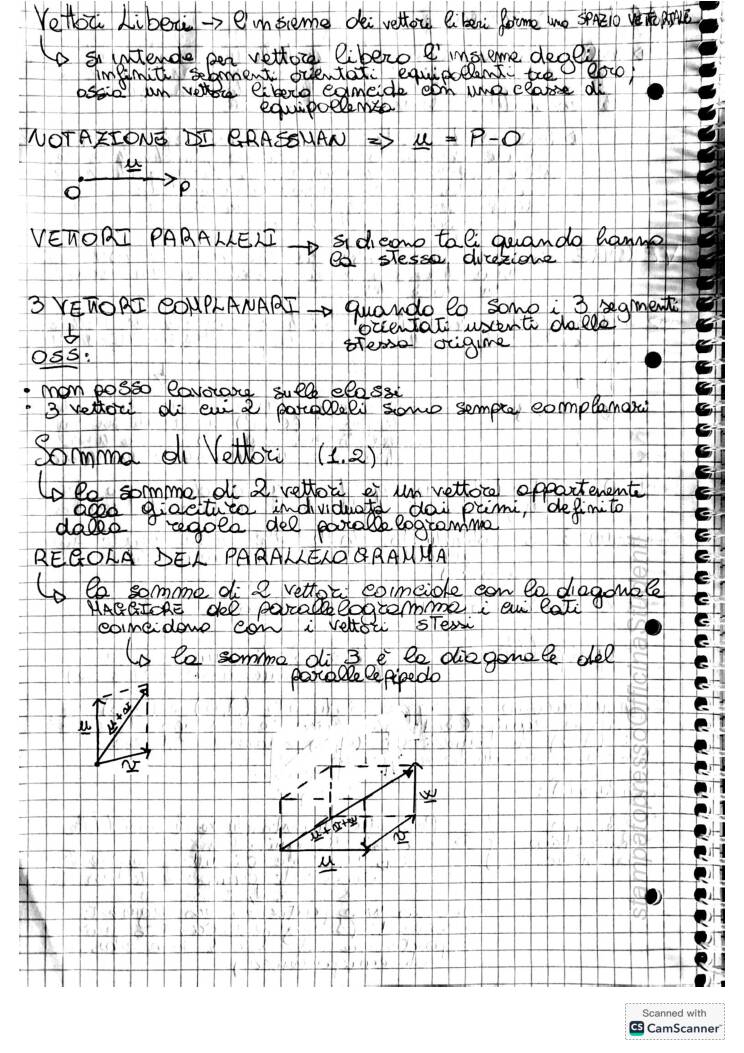 Vettori Liberi → l'insieme dei vettori liberi forma uno SPAZIO VETTORIALE
↳ si intende per vettore libero l'insieme degli
infiniti segmenti orientati equipollenti tra loro;
ossia un vettore libero coincide con una classe di
equipollenza
NOTAZIONE DI GRASSMAN => u = P-O
u
O P
VETTORI PARALLELI → si dicono tali quando hanno
la stessa direzione
3 VETTORI COMPLANARI → quando lo sono i 3 segmenti
orientati uscenti dalla
stessa origine
↓
OSS:
• non posso lavorare sulle classi
• 3 vettori di cui 2 paralleli sono sempre complanari
Somma di Vettori (1.2)
↳ la somma di 2 vettori è un vettore appartenente
alla giacitura individuata dai primi, definito
dalla regola del parallelogramma
REGOLA DEL PARALLELOGRAMMA
↳ la somma di 2 vettori coincide con la diagonale
MAGGIORE del parallelogramma i cui lati
coincidono con i vettori stessi
↳ la somma di 3 è la diagonale del
parallelepipedo
u
u+v
v
u+v+w
w
v
u
stampatopressoOfficinaStudenti
Scanned with
CS CamScanner